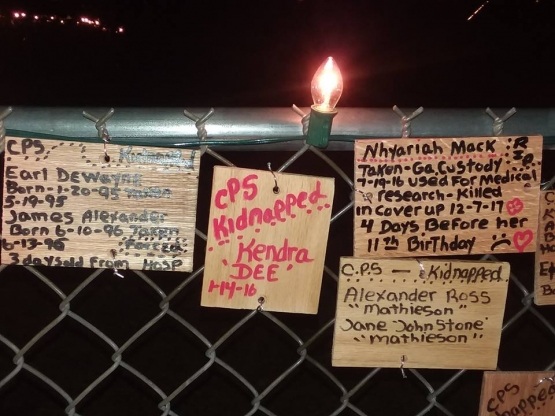 CPS Kidnapped
Earl DeWayne
Born-1-20-95 Taken
5-19-95
James Alexander
Born 6-10-96 Taken
6-13-96
3 days old From Hosp
CPS
Kidnapped
Kendra
"DEE"
1-14-16
Nhyariah Mack : R
I
P
Taken-Ga. Custody
7-19-16 used For Medical
research-killed
in cover up 12-7-17
4 Days Before her
11th Birthday
C.P.S — Kidnapped
Alexander Ross
"mathieson"
Jane "John Stone"
"mathieson"
CPS